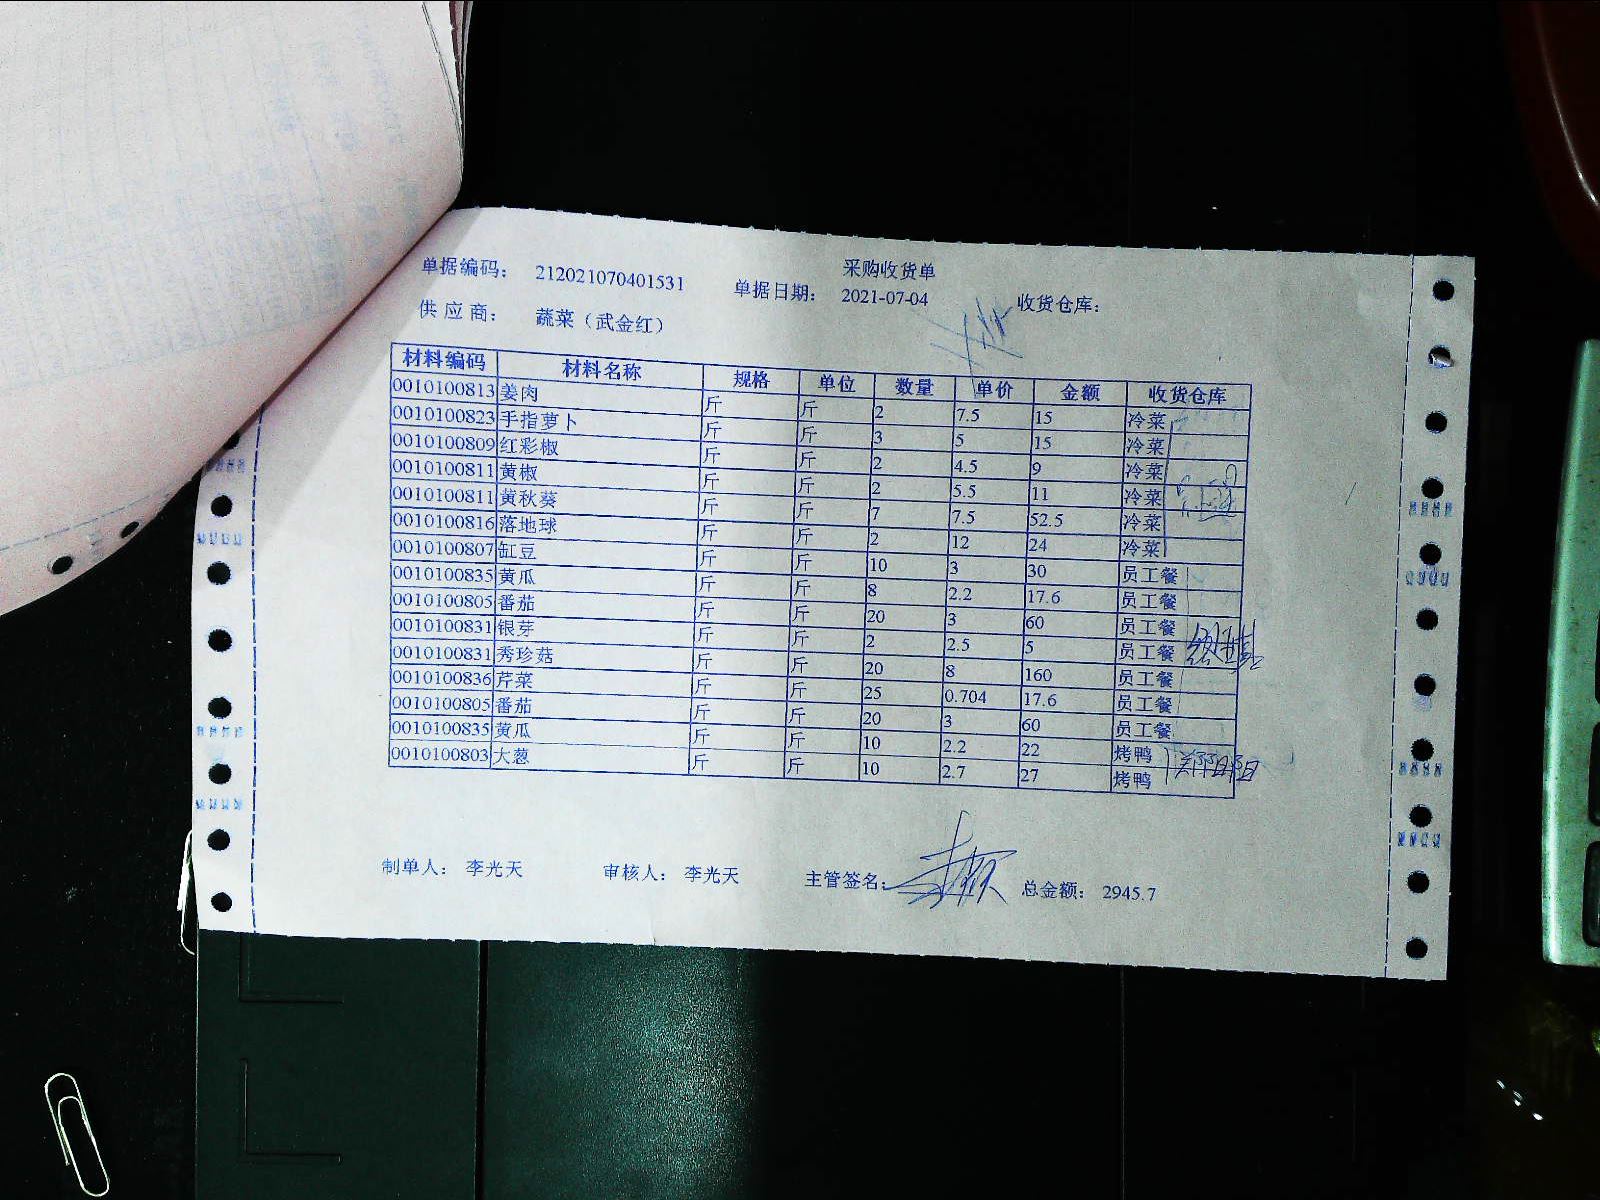 采购收货单
单据编码： 212021070401531 单据日期： 2021-07-04 收货仓库：
供 应 商： 蔬菜（武金红）
材料编码 材料名称 规格 单位 数量 单价 金额 收货仓库
0010100813 姜肉 斤 斤 2 7.5 15 冷菜
0010100823 手指萝卜 斤 斤 3 5 15 冷菜
0010100809 红彩椒 斤 斤 2 4.5 9 冷菜
0010100811 黄椒 斤 斤 2 5.5 11 冷菜
0010100811 黄秋葵 斤 斤 7 7.5 52.5 冷菜
0010100816 落地球 斤 斤 2 12 24 冷菜
0010100807 缸豆 斤 斤 10 3 30 员工餐
0010100835 黄瓜 斤 斤 8 2.2 17.6 员工餐
0010100805 番茄 斤 斤 20 3 60 员工餐
0010100831 银芽 斤 斤 2 2.5 5 员工餐
0010100831 秀珍菇 斤 斤 20 8 160 员工餐
0010100836 芹菜 斤 斤 25 0.704 17.6 员工餐
0010100805 番茄 斤 斤 20 3 60 员工餐
0010100835 黄瓜 斤 斤 10 2.2 22 烤鸭
0010100803 大葱 斤 斤 10 2.7 27 烤鸭
制单人： 李光天 审核人： 李光天 主管签名： 总金额： 2945.7